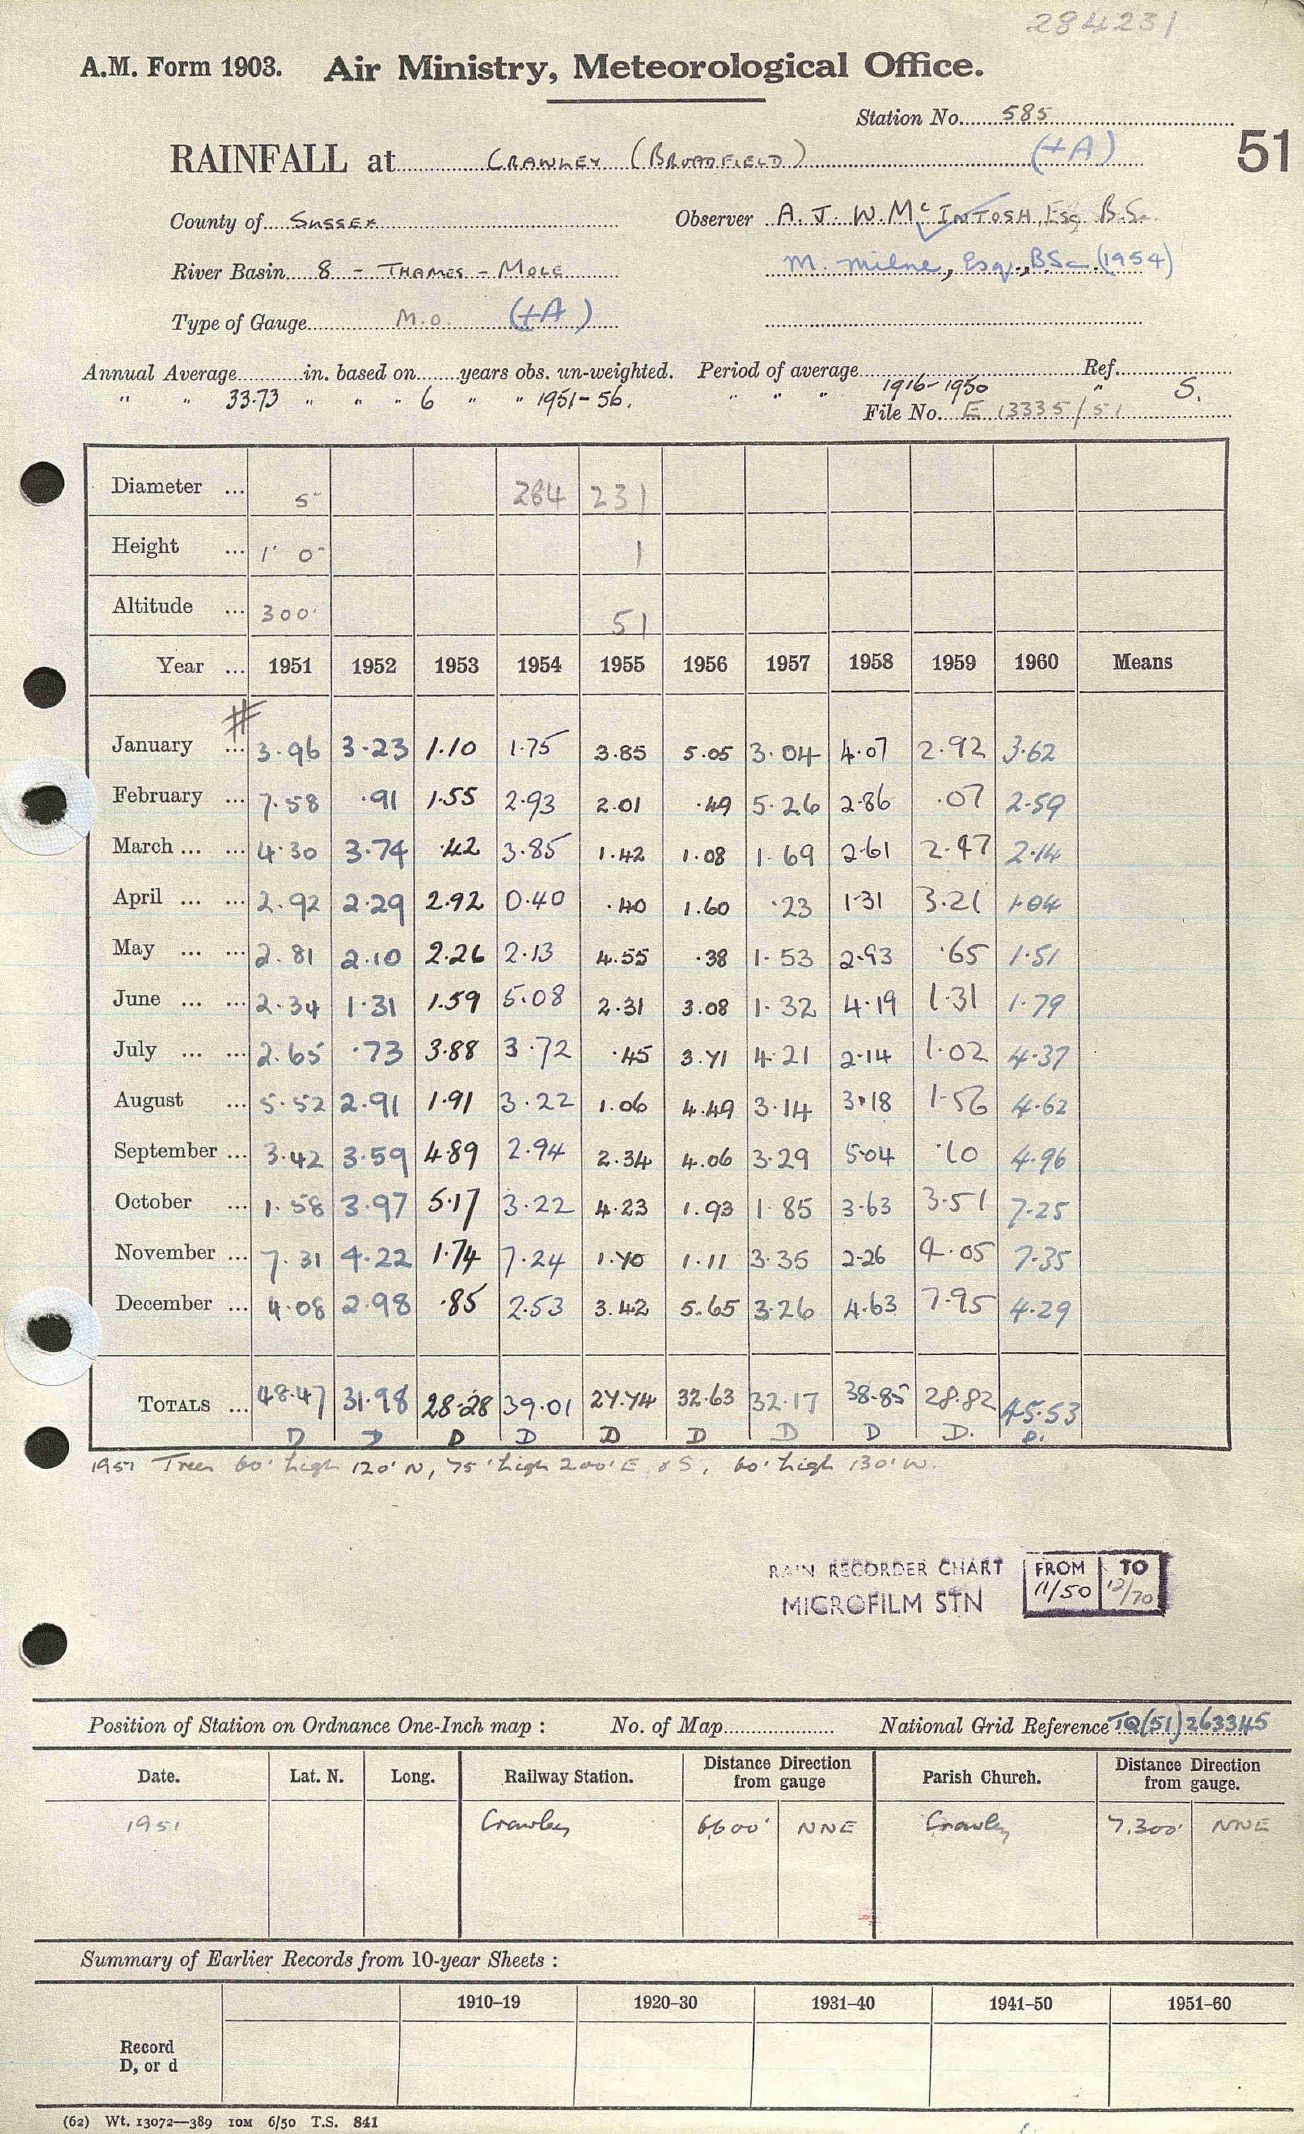 284231
A.M. Form 1903. Air Ministry, Meteorological Office.
Station No. 585
RAINFALL at CRAWLEY (BROADFIELD) (+A) 51
County of SUSSEX Observer A. J. W. McINTOSH, Esq B.Sc.
River Basin 8 - THAMES - MOLE M. Milne, Esq., BSc. (1954)
Type of Gauge M.O. (+A)
Annual Average in. based on years obs. un-weighted. Period of average Ref.
" " 33.73 " " " 6 " " 1951-56. " " " 1916-1950 " S.
File No. E 13335/51
Diameter ... 5" 284 231
Height ... 1' 0" 1
Altitude ... 300' 51
Year ... 1951 1952 1953 1954 1955 1956 1957 1958 1959 1960 Means
#
January ... 3.96 3.23 1.10 1.75 3.85 5.05 3.04 4.07 2.92 3.62
February ... 7.58 .91 1.55 2.93 2.01 .49 5.26 2.86 .07 2.59
March ... ... 4.30 3.74 .42 3.85 1.42 1.08 1.69 2.61 2.47 2.14
April ... ... 2.92 2.29 2.92 0.40 .40 1.60 .23 1.31 3.21 1.04
May ... ... 2.81 2.10 2.26 2.13 4.55 .38 1.53 2.93 .65 1.51
June ... ... 2.34 1.31 1.59 5.08 2.31 3.08 1.32 4.19 1.31 1.79
July ... ... 2.65 .73 3.88 3.72 .45 3.71 4.21 2.14 1.02 4.37
August ... 5.52 2.91 1.91 3.22 1.06 4.49 3.14 3.18 1.56 4.62
September ... 3.42 3.59 4.89 2.94 2.34 4.06 3.29 5.04 .10 4.96
October ... 1.58 3.97 5.17 3.22 4.23 1.93 1.85 3.63 3.51 7.25
November ... 7.31 4.22 1.74 7.24 1.70 1.11 3.35 2.26 4.05 7.35
December ... 4.08 2.98 .85 2.53 3.42 5.65 3.26 4.63 7.95 4.29
TOTALS ... 48.47 31.98 28.28 39.01 27.74 32.63 32.17 38.85 28.82 45.53
D D D D D D D D D. D.
1951 Trees 60' high 120' N, 75' high 200' E & S, 60' high 130' W.
RAIN RECORDER CHART FROM TO
MICROFILM STN 11/50 12/70
Position of Station on Ordnance One-Inch map : No. of Map National Grid Reference TQ(51)263345
Date. Lat. N. Long. Railway Station. Distance Direction from gauge Parish Church. Distance Direction from gauge.
1951 Crawley 6600' NNE Crawley 7,300' NNE
Summary of Earlier Records from 10-year Sheets :
1910-19 1920-30 1931-40 1941-50 1951-60
Record
D, or d
(62) Wt. 13072—389 10M 6/50 T.S. 841